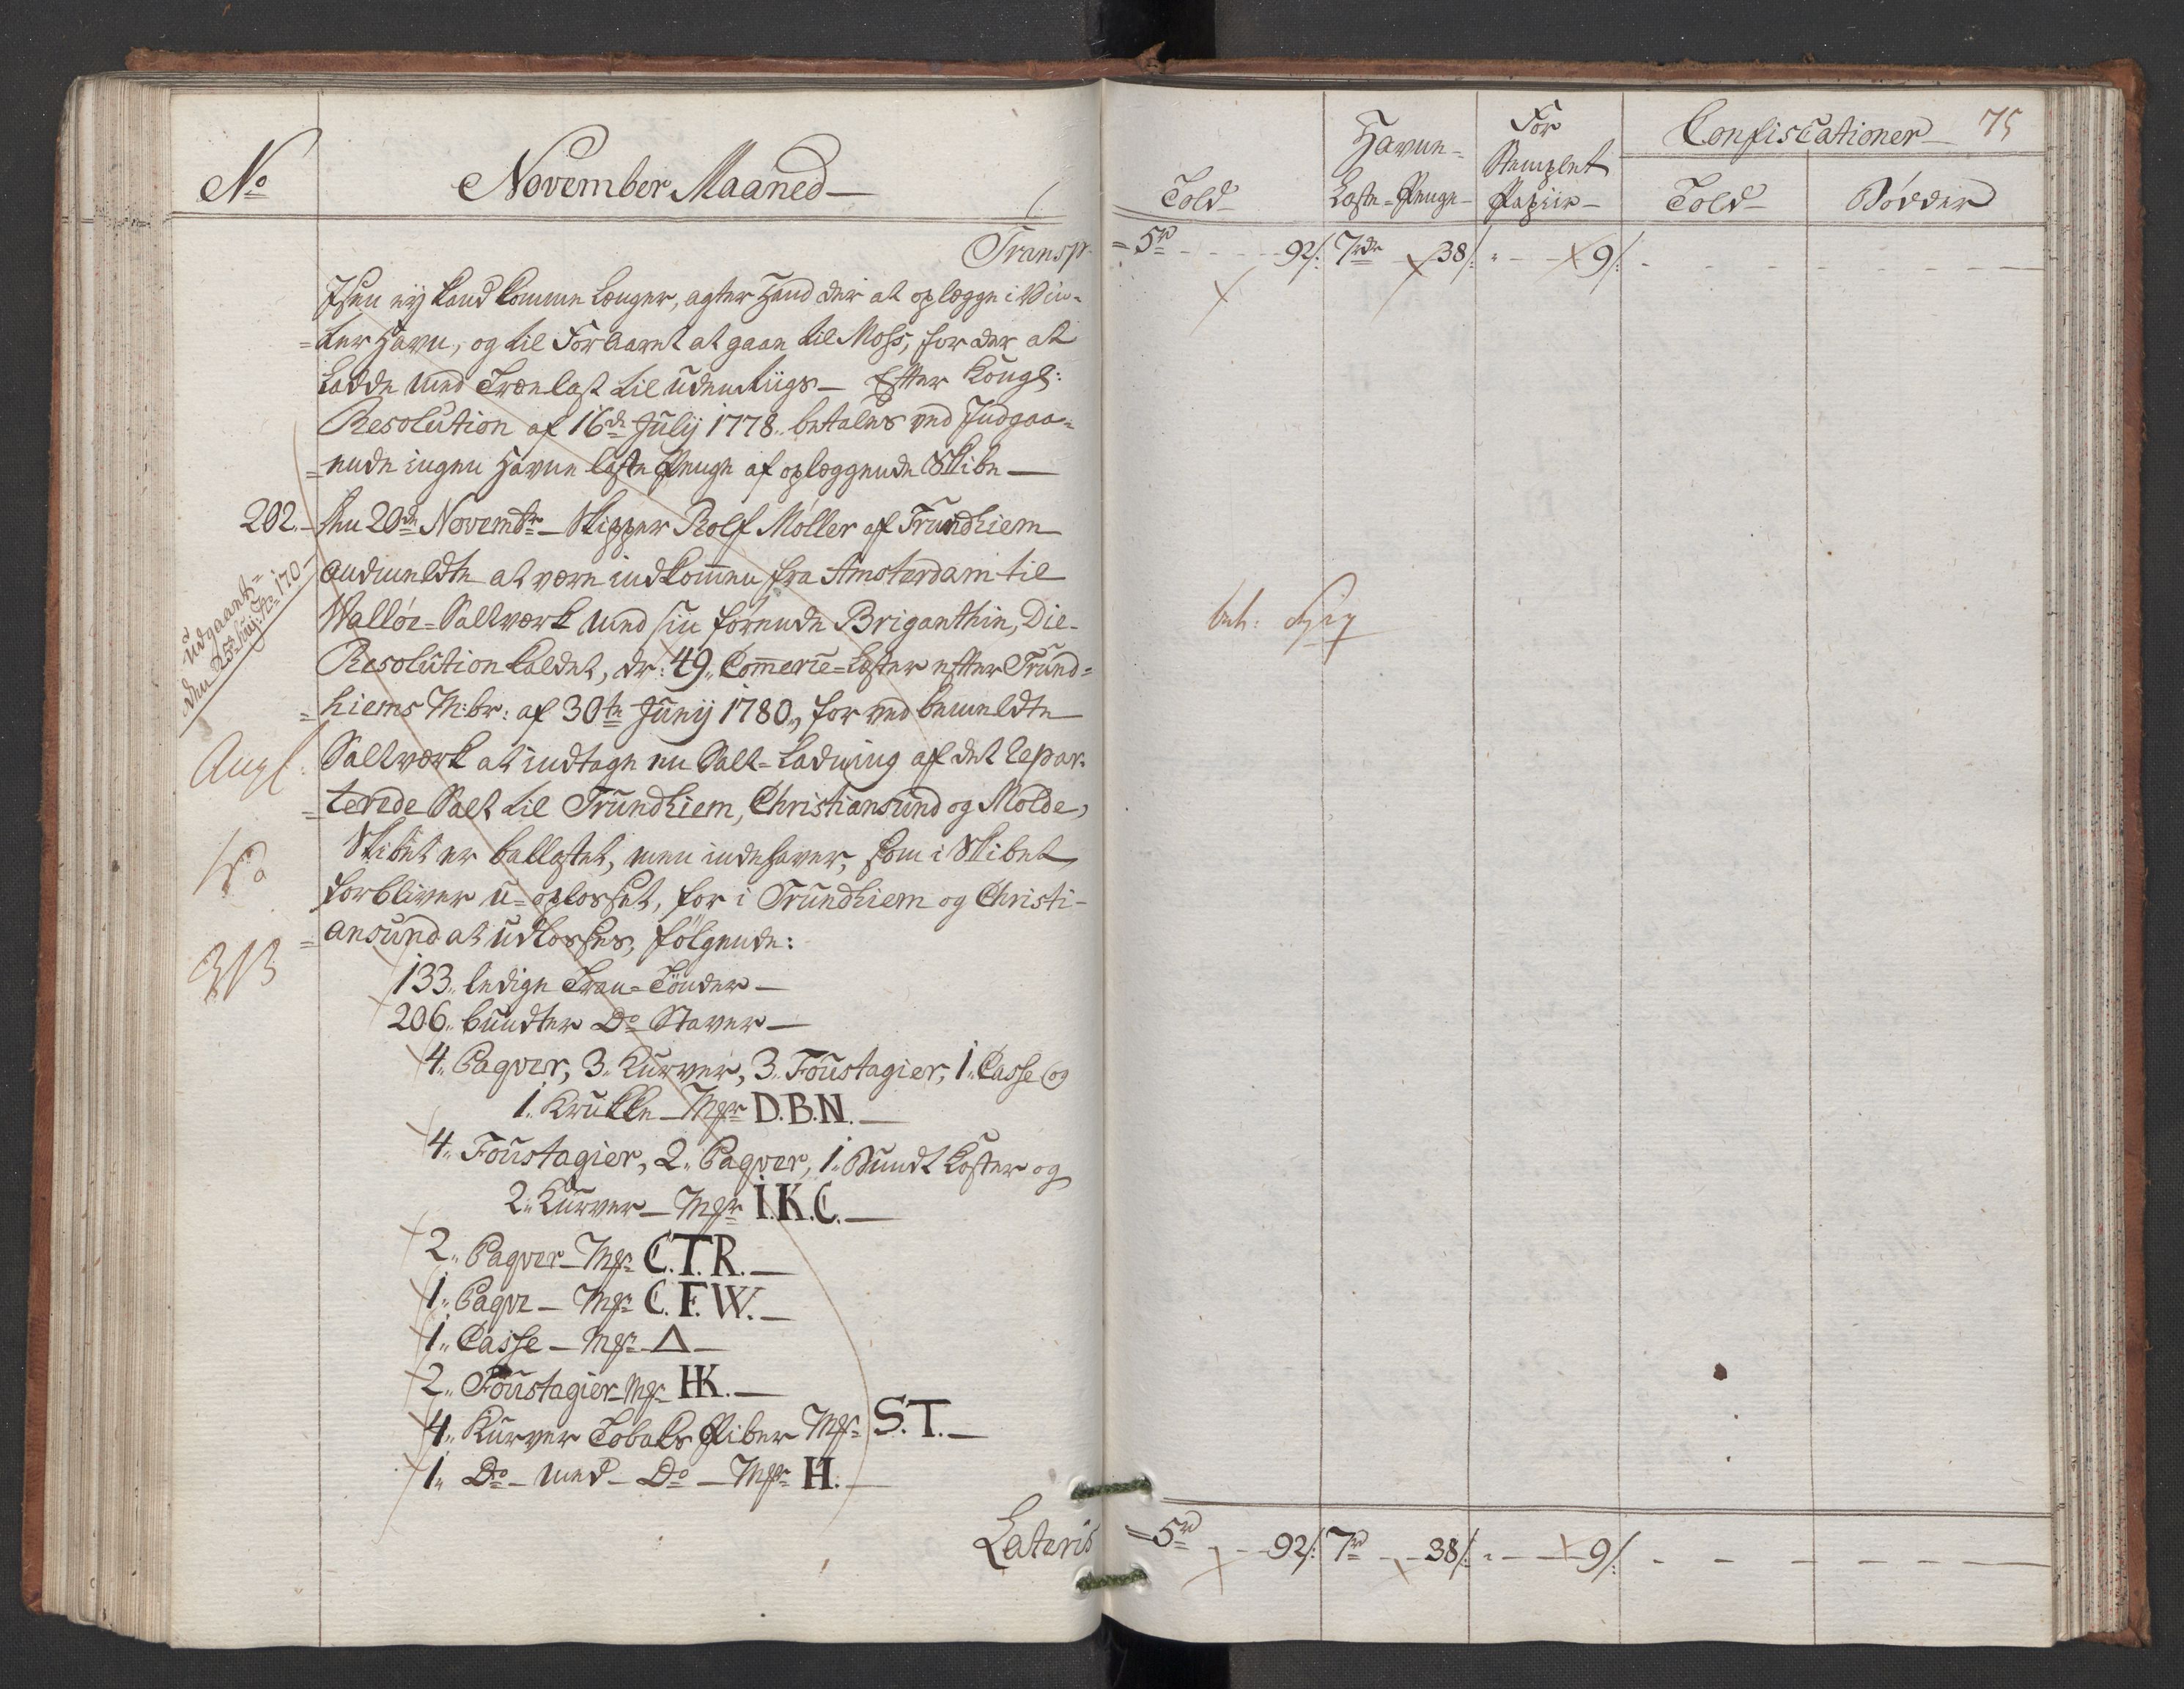 No
November Maaned
Transp.
Isen ey kand komme længer, agter Hand der at oplægge i Vin-
=ter Havn, og til Foraaret at gaae til Moss, for der at
ladde med Trælast til udenriigs — Efter Kongl:
Resolution af 16de Julij 1778 betales ved Indgaa-
=ende ingen Havne laste Penge af oplæggende Skibe —
202. Den 20de Novembr — Skipper Rolf Møller af Trundhiem
Udgaaet
den 25de No 170
andmeldte at være indkommen fra Amsterdam til
Walløe-Saltværk med sin førende Briganthin, Die-
Resolution kaldet, dr: 49 Commerce-Læster efter Trund=
=hiems M:br: af 30te Junij 1780, for ved bemeldte
Saltværk at indtage en Salt-Ladning af det repar-
=terede Salt til Trundhiem, Christiansund og Molde,
Skibet er ballastet, men indehaver, som i Skibet
forbliver u-oplosset, for i Trundhiem og Christi-
=ansund at udlosses, følgende:
133 ledige Tran-Tønder —
206 bundter Do Staver —
4 Paqver, 3 Kurver, 3 Foustagier, 1 Casse og
1 Krukke — Mrk D.B.N. —
4 Foustagier, 2 Paqver, 1 Bundt Koster og
2 Kurver — Mrk I.K.C. —
2 Paqver — Mrk C.T.R. —
1 Paqve — Mrk C.F.W. —
1 Casse — Mrk Δ —
2 Foustagier Mrk HK. —
4 Kurver Tobaks Piber Mrk S.T. —
1 Do — med — Do — Mrk H. —
Lateris
75
Told
Havne-
Laste-Penge
For
Stemplet
Papiir
Confiscationer
Told
Bødder
=5rd 92/: 7rdr 38/: " 9/:
=5rd 92/: 7rd 38/: " 9/: